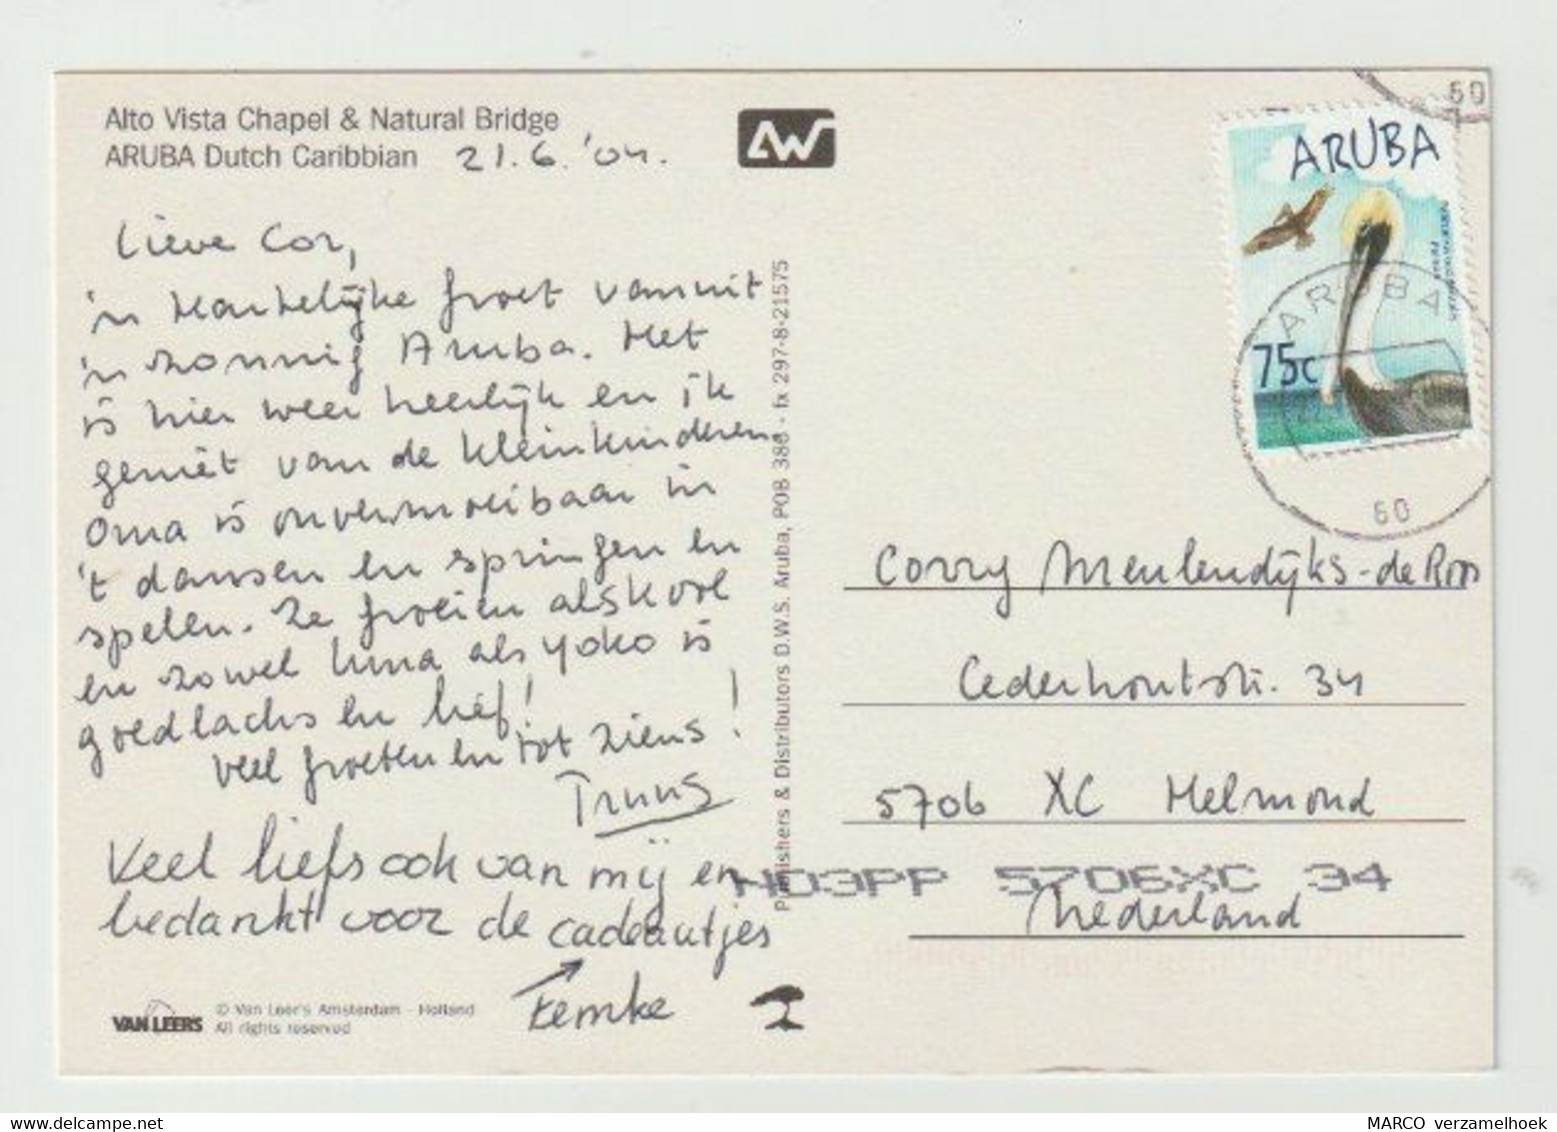 Alto Vista Chapel & Natural Bridge
ARUBA Dutch Caribbian 21.6.'04.
AW
Lieve Cor,
'n Hartelijke groet vanuit
'n zonnig Aruba. Het
is hier weer heerlijk en ik
geniet van de kleinkinderen
Oma is onvermoeibaar in
't dansen en springen en
spelen. Ze groeien als kool
en zowel Luna als Yoko is
goedlachs en lief!
Veel groeten en tot ziens!
Truus
Veel liefs ook van mij en
bedankt voor de cadeautjes
Femke
VAN LEERS © Van Leer's Amsterdam - Holland
All rights reserved
Publishers & Distributors D.W.S. Aruba, POB 388 - fx 297-8-21575
ARUBA
75c
ARUBA
60
60
Corry Meulendijks-de Roos
Cederhoutstr. 34
5706 XC Helmond
HD3PP 5706XC 34
Nederland
MARCO verzamelhoek